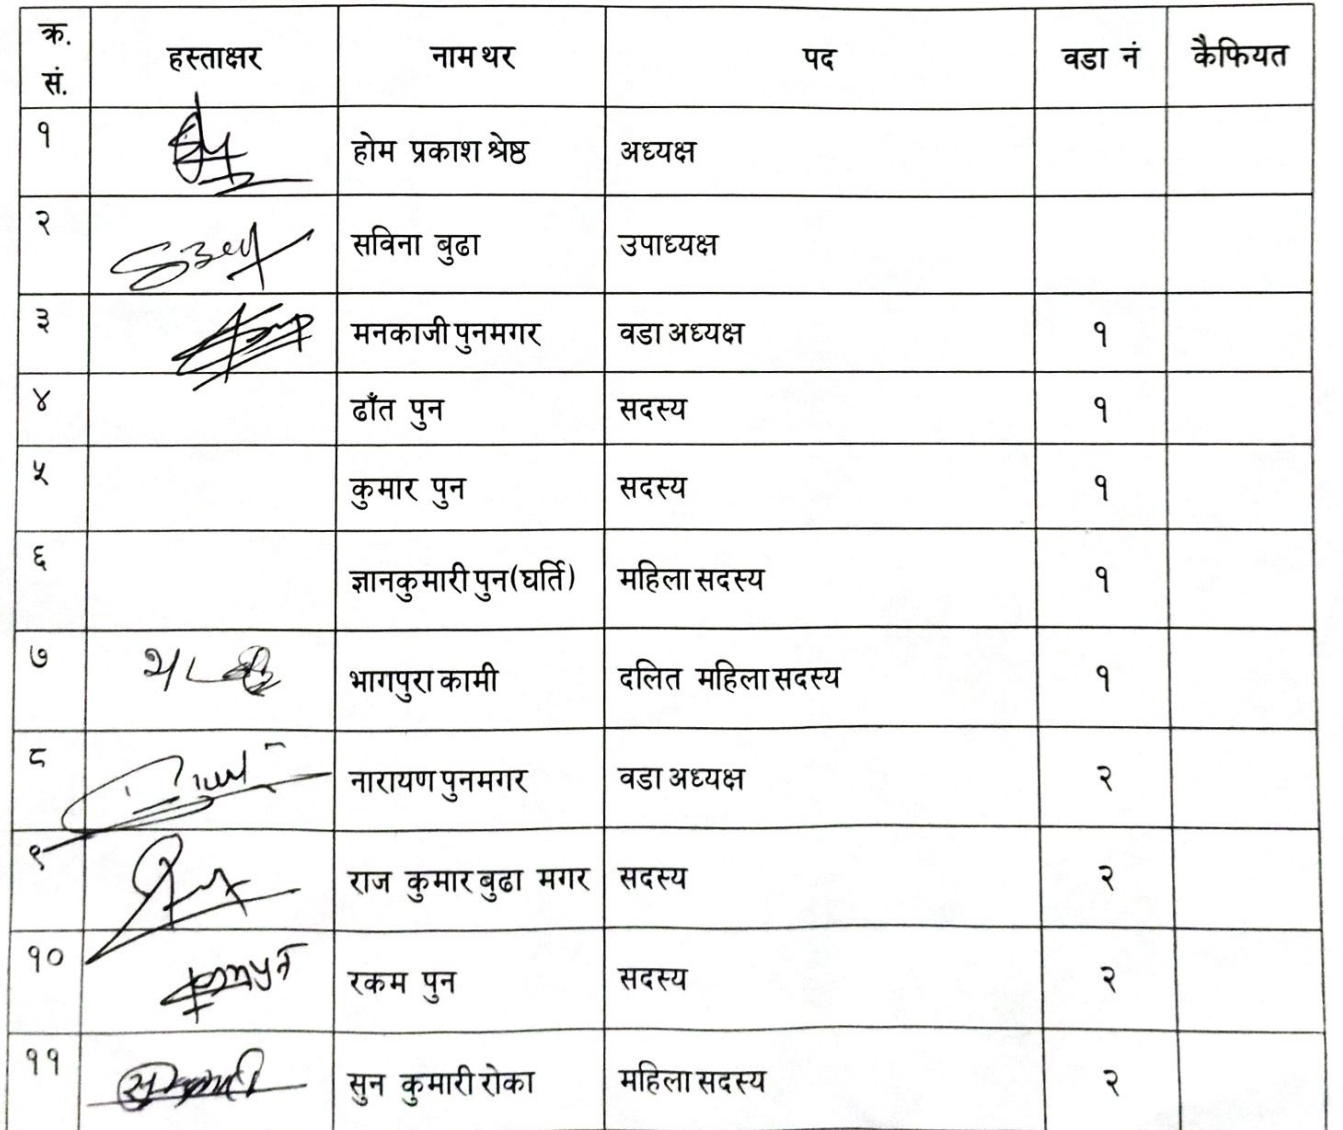 क्र. सं. हस्ताक्षर नाम थर पद वडा नं कैफियत
१ होम प्रकाश श्रेष्ठ अध्यक्ष
२ सविना बुढा उपाध्यक्ष
३ मनकाजी पुनमगर वडा अध्यक्ष १
४ ढाँत पुन सदस्य १
५ कुमार पुन सदस्य १
६ ज्ञानकुमारी पुन(घर्ति) महिला सदस्य १
७ भागपुरा कामी दलित महिला सदस्य १
८ नारायण पुनमगर वडा अध्यक्ष २
९ राज कुमार बुढा मगर सदस्य २
१० रकम पुन सदस्य २
११ सुन कुमारी रोका महिला सदस्य २